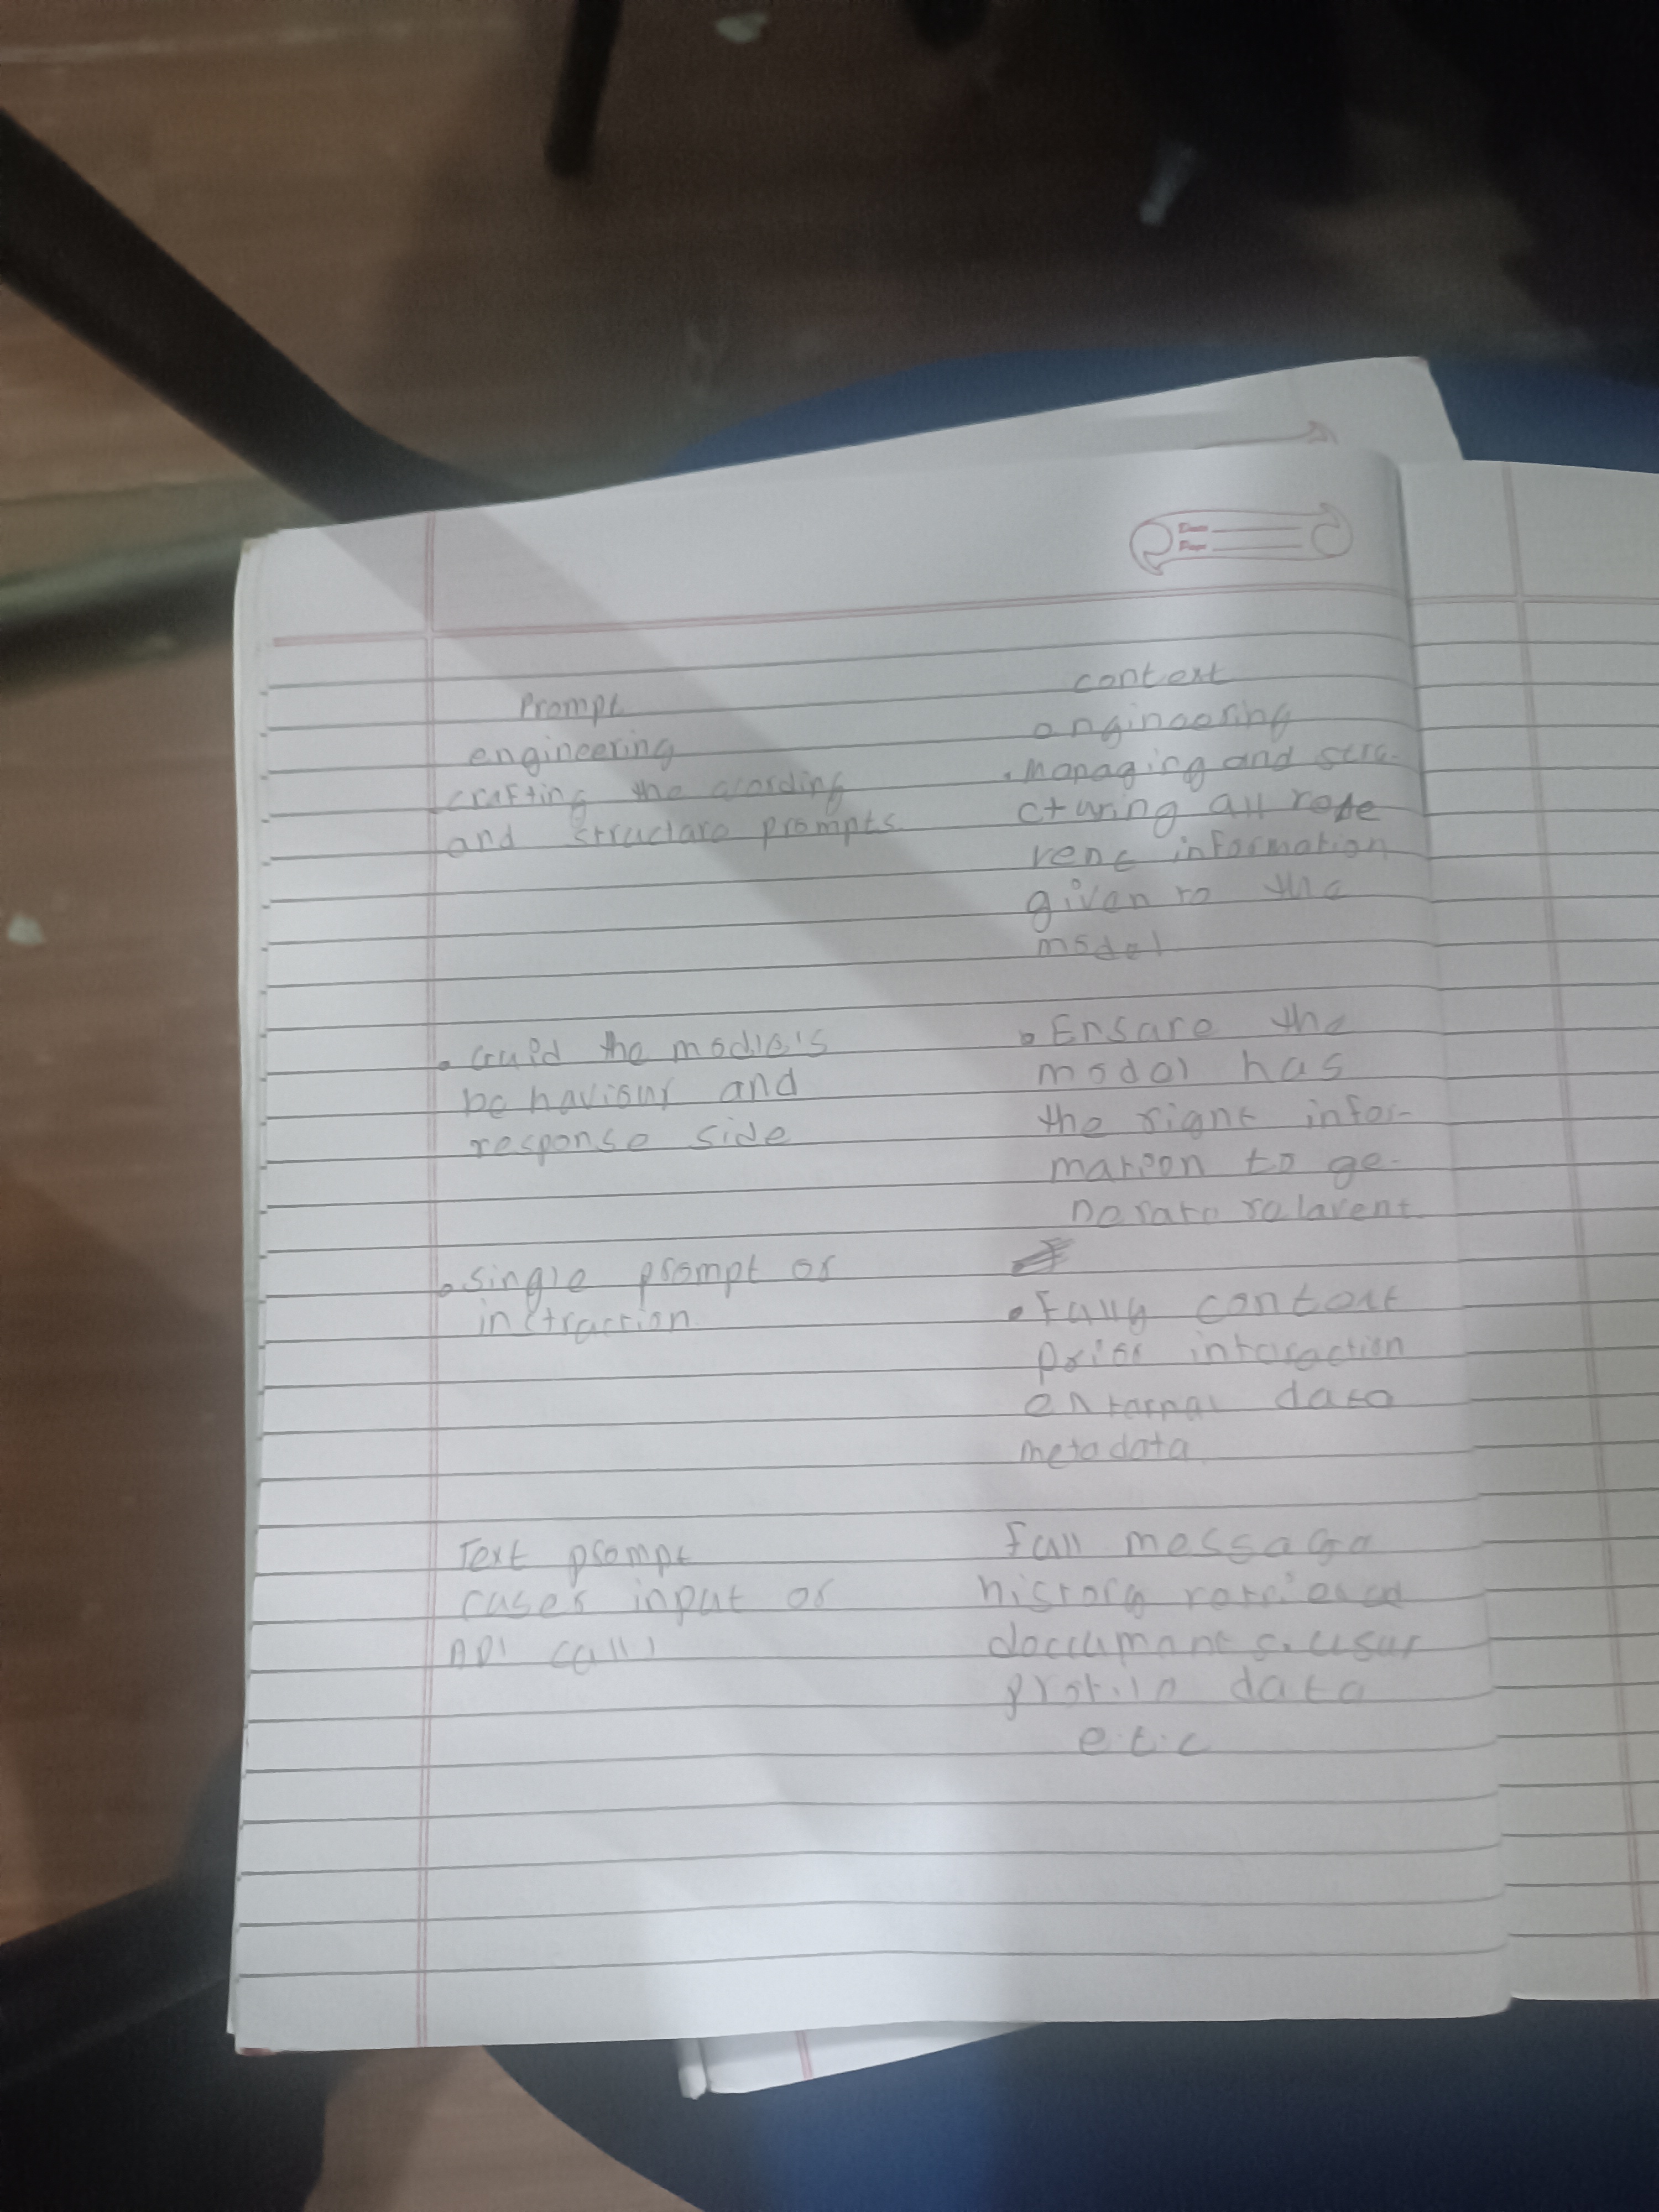 Prompt
engineering
crafting the wording
and structure prompts
. Guid the modle's
behaviour and
response side
. single prompt or
instruction
Text prompt
cuser input or
API call)
context
engineering
. Managing and stru-
cturing all
information
given to the
model
. Ensure the
model has
the right infor-
mation to ge-
nerate relavent
. Fully context
prior interaction
external data
metadata
Full message
history
documents. usur
profile data
e.t.c